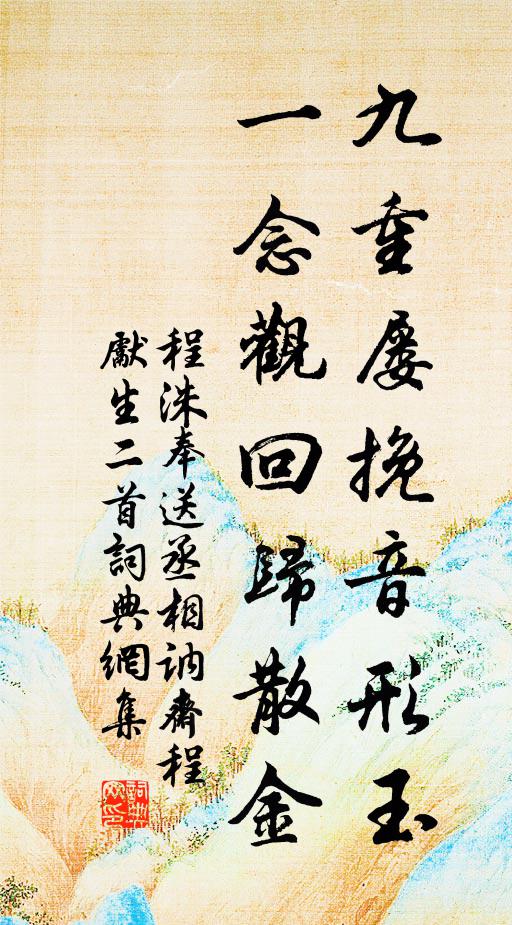 九重屡挽音形玉
一念觀回歸散金
程洙奉送丞相訥齋程
獻生二首詞典網集
詞典網印